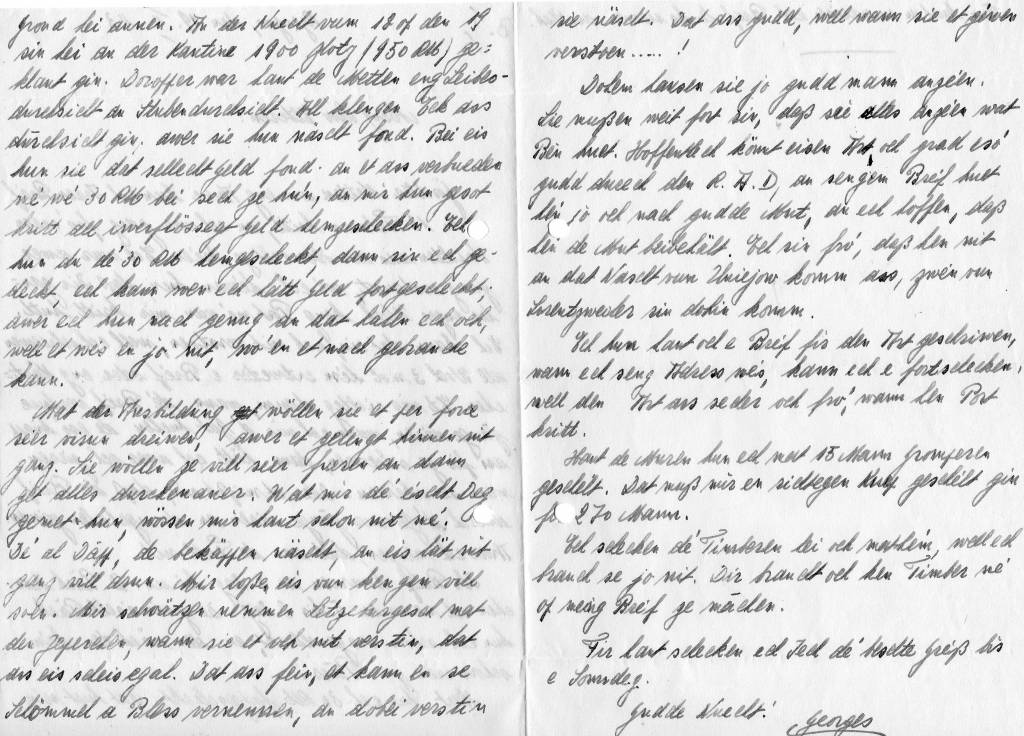 grond lei annen. An der Nuecht vum 18 of den 19
sin lei an der Kantine 1900 zloty (950 RM) ge=
klaut gin. Doroffer war haut de Metten eng Leibes-
durchsicht an Stubendurchsicht. All klengen Eck ass
durchsicht gin, awer sie hun näscht fond. Bei eis
hun sie dat sellecht Geld fond. an et ass verbueden
mé wé 30 RM bei sech ze hun, an mir hun gsot
kritt all iwerflössegt Geld hemzeschecken. Ech
hun du dé 30 RM hemgescheckt, dann sin ech ge-
deckt, ech kann wen ech lätt Geld fortgescheckt,
awer ech hun nach genug an dat halen ech och,
well et wés en jo nit, wo en et nach gebrauche
kann.
Mat der Ausbildung wöllen sie et fir force
séer virun dreiwen, awer et gelengt hinnen nit
ganz. Sie wöllen ze vill séer fueren an dann
get alles durcheneuer. Wat mir dé éischt Deg
geléert hun, wössen mir haut schon nit mé.
Dé al Däpp, de bekäppen näscht, an eis läit nit
ganz vill drun. Mir loßen eis vun kengem vill
soen. Mir schwätzen nemmen Letzeburgesch mat
den Jezerechen, wann sie et och nit verstin, dat
ass eis scheisegal. Dat ass fein, et kann en se
Schömmel a Bless vernennen, an dobei verstin
sie näscht. Dat ass gudd, well wann sie et géwen
verstoen.....!
Dohem hausen sie jo gudd mann angéen.
Sie mußen weit fort sin, daß sie alles angéen wat
Ben huet. Hoffentlech könnt eisen Art och grad esó
gudd duerch den R. A. D, an sengem Breif huet
hén jo och nach gudde Mut, an ech hoffen, daß
hén de Mut beibehält. Ech sin fró, daß hen nit
an dat Nascht vun Uniejow komm ass, zwén vun
Lorentzweiler sin dohin komm.
Ech hun haut och e Breif fir den Art geschriwen,
wann ech seng Adress wés, kann ech e fortschecken,
well den Art ass secher och fró, wann hen Post
kritt.
Haut de Muren hun ech mat 15 Mann Gromperen
geschélt. Dat muß mir en richtegen Kuep geschélt gin
fir 270 Mann.
Ech schecken dé Timberen hei och mat hém, well ech
brauch se jo nit. Dir braucht och ken Timber mé
of meng Breif ze máchen.
Fir haut schecken ech Iech dé beschte Gréiß bis
e Sonndeg.
Gudde Nuecht! Georges